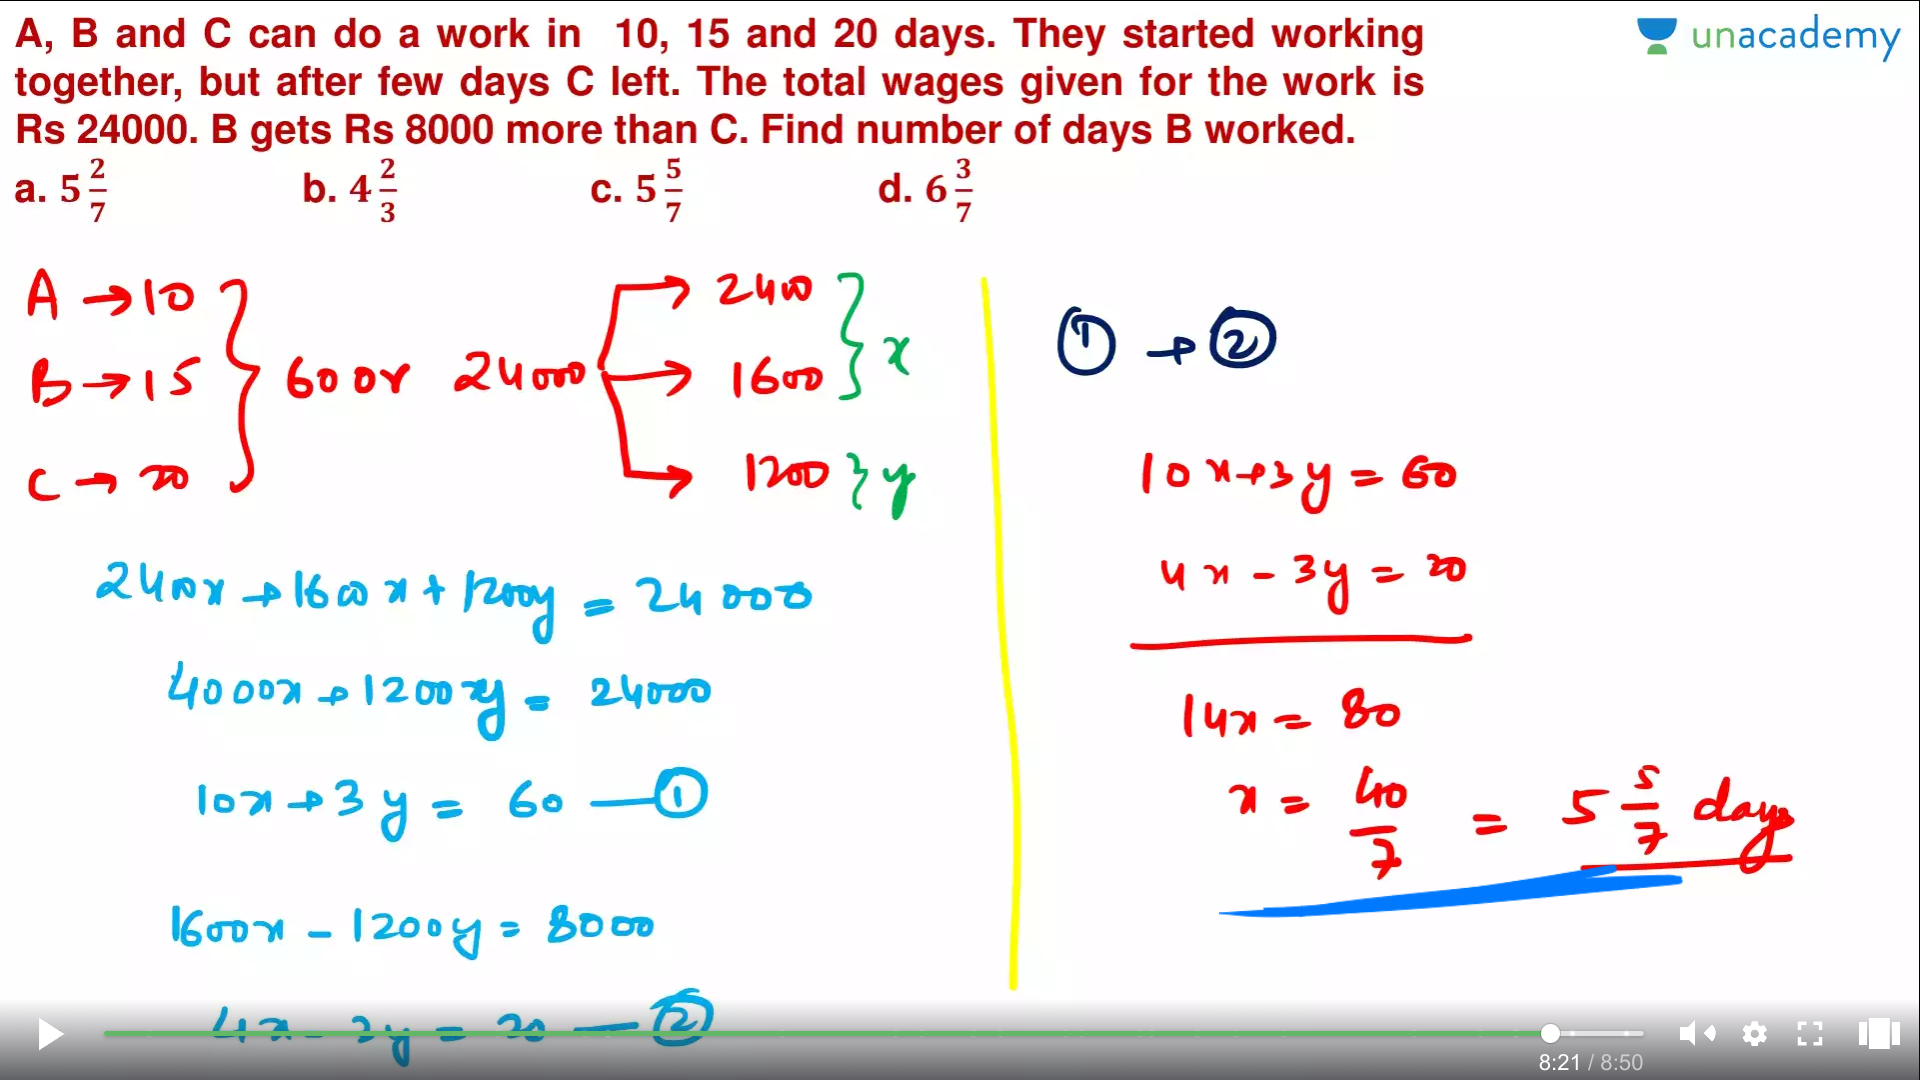 A, B and C can do a work in 10, 15 and 20 days. They started working
together, but after few days C left. The total wages given for the work is
Rs 24000. B gets Rs 8000 more than C. Find number of days B worked.
a. 5 2/7 b. 4 2/3 c. 5 5/7 d. 6 3/7
unacademy
A → 10
B → 15
C → 20
24000
2400
1600
1200
x
y
2400x + 1600x + 1200y = 24000
10x + 3y = 60 — ①
1600x - 1200y = 8000
4x - 3y = 20 — ②
① + ②
10x + 3y = 60
4x - 3y = 20
14x = 80
x = 40/7 = 5 5/7 days
8:21 / 8:50